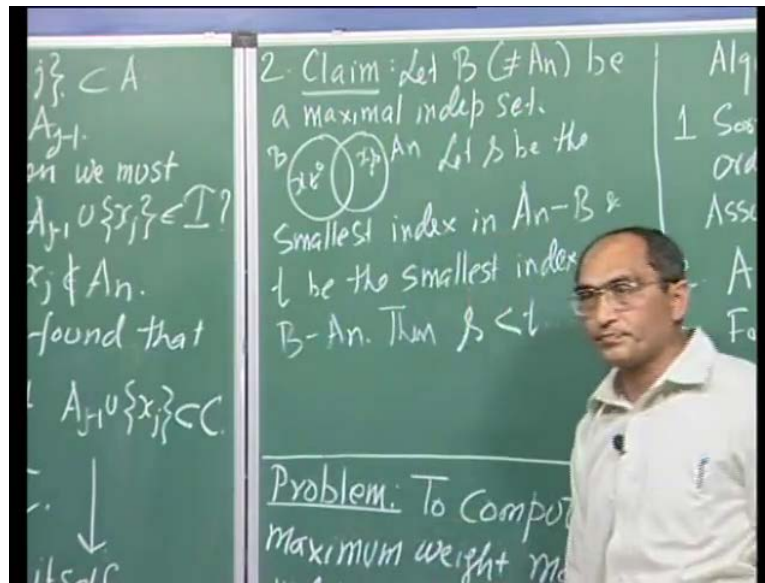 j}. ⊂ A
A_{j-1}.
we must
A_{j-1} ∪ {x_j} ∈ I?
x_j ∉ An.
found that
A_{j-1} ∪ {x_j} ⊂ C
itself
2. Claim: Let B (≠ An) be
a maximal indep set.
B x_t x_s An Let s be the
smallest index in An - B &
t be the smallest index
B - An. Then s < t
Problem: To
maximum weight
1
A